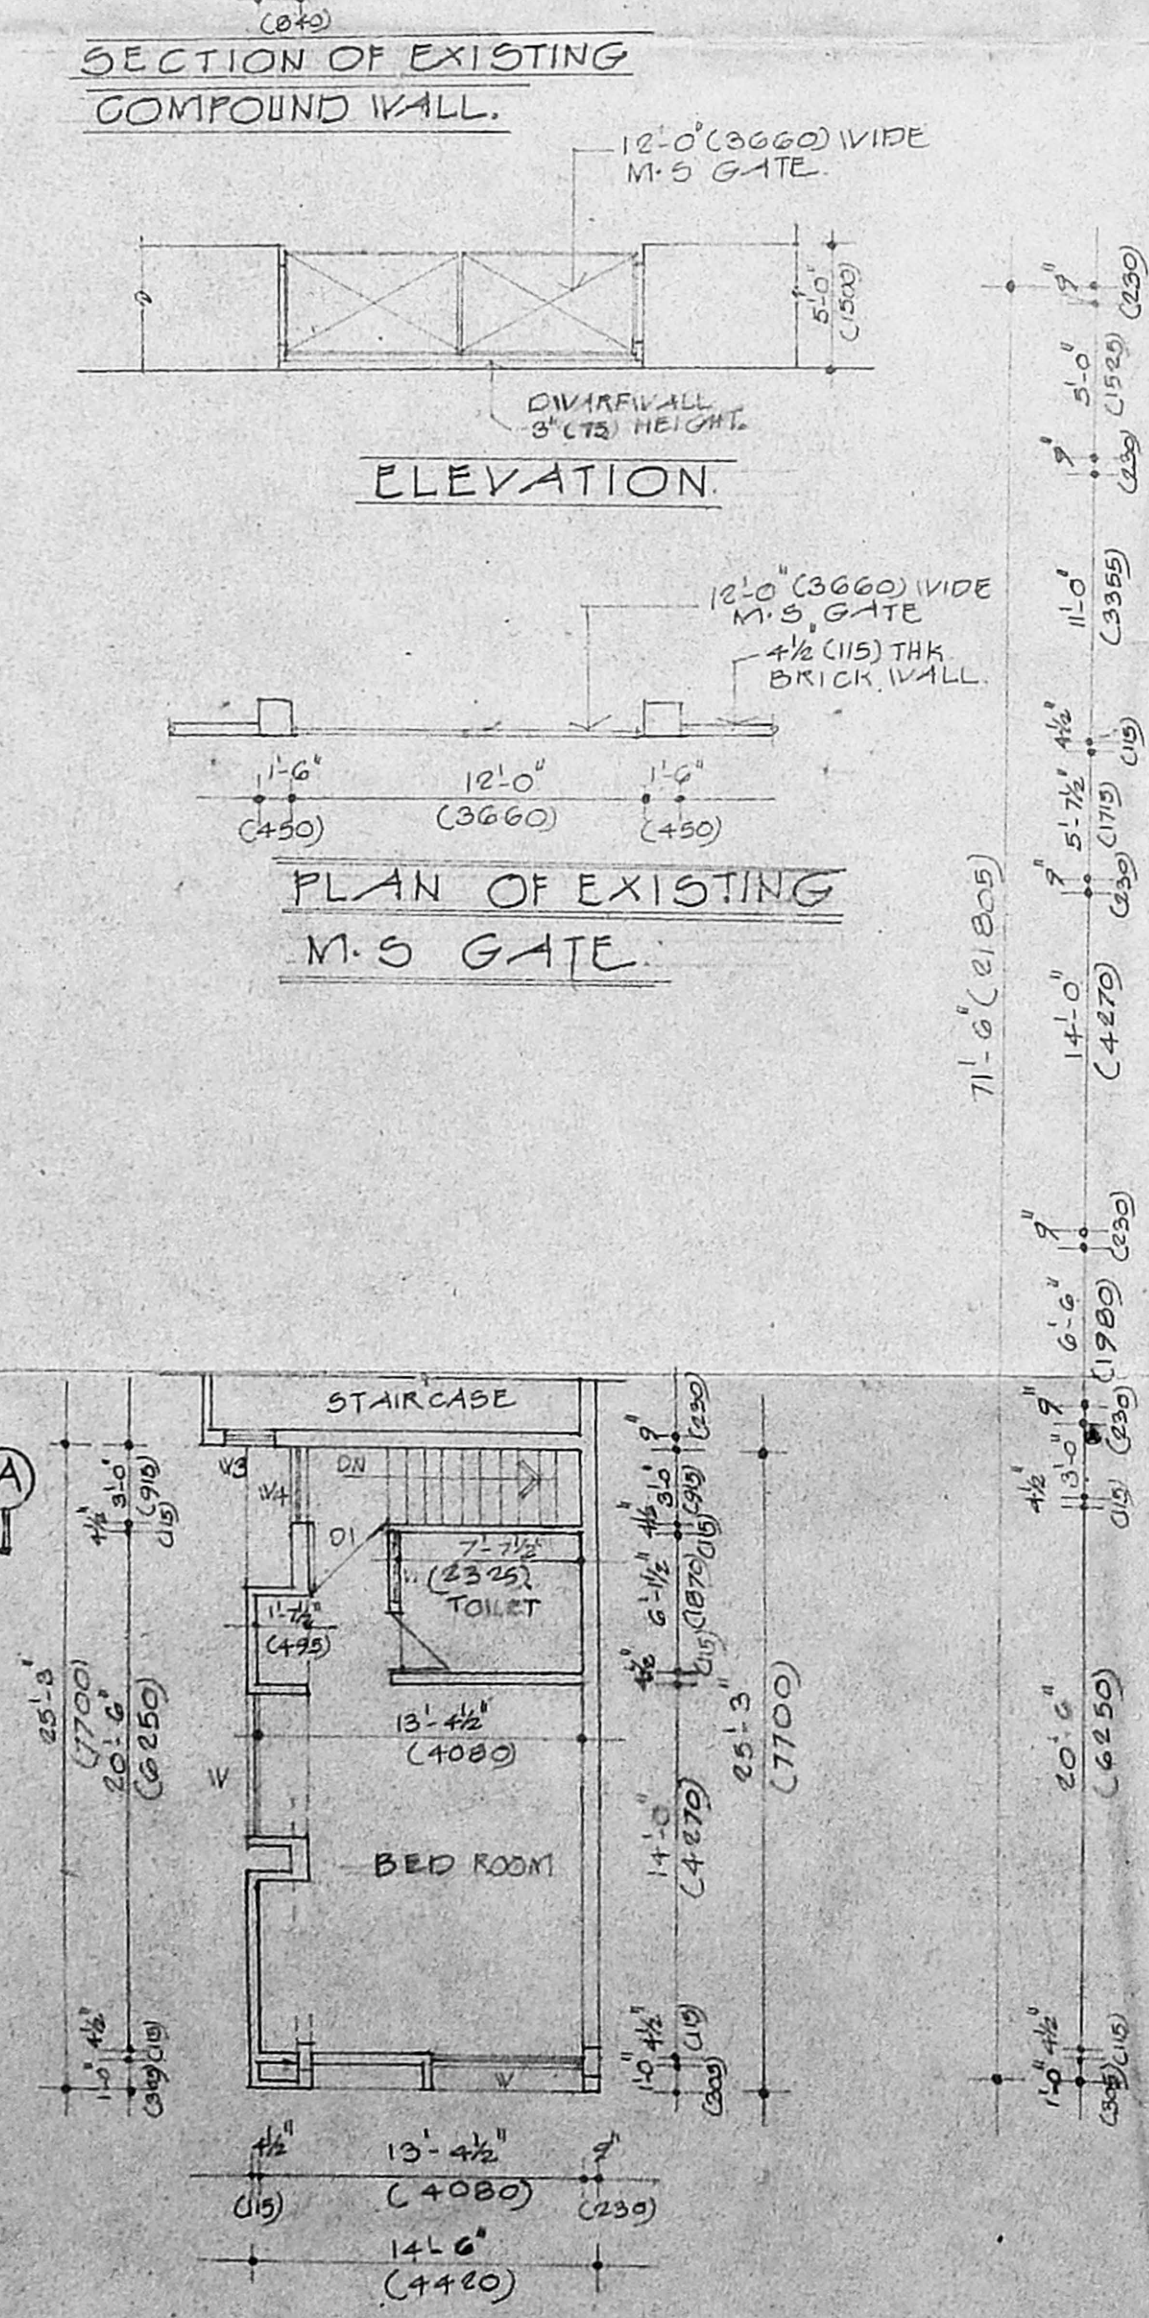 (840)
SECTION OF EXISTING
COMPOUND WALL.
12'-0"(3660) WIDE
M.S GATE.
5'-0"
(1500)
DWARFWALL
3"(75) HEIGHT.
ELEVATION.
12'-0"(3660) WIDE
M.S GATE
4½"(115) THK
BRICK WALL.
1'-6"
12'-0"
1'-6"
(450)
(3660)
(450)
PLAN OF EXISTING
M.S GATE.
71'-6"(21805)
9"
(230)
5'-0"
(1525)
9"
(230)
11'-0"
(3355)
4½"
(115)
5'-7½"
(1715)
9"
(230)
14'-0"
(4270)
9"
(230)
6'-6"
(1980)
9"
(230)
3'-0"
4½"
(115)
20'-6"
(6250)
4½"
(115)
1'-0"
(305)
A
STAIRCASE
W3
W4
DN
D1
7'-7½"
(2325)
TOILET
1'-7½"
(495)
13'-4½"
(4080)
W
BED ROOM
W
3'-0"
(915)
4½"
(115)
25'-3"
(7700)
20'-6"
(6250)
4½"
(115)
1'-0"
(305)
9"
(230)
3'-0"
(915)
4½"
(115)
6'-1½"
(1870)
4½"
(115)
14'-0"
(4270)
25'-3"
(7700)
4½"
(115)
1'-0"
(305)
4½"
13'-4½"
9"
(115)
(4080)
(230)
14'-6"
(4420)